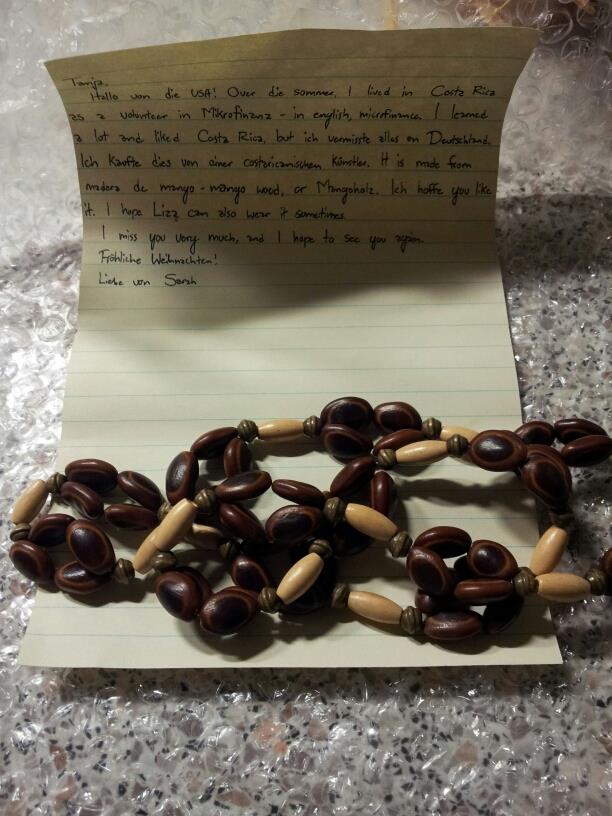 Tanja,
Hallo von die USA! Over die sommer, I lived in Costa Rica
as a volunteer in Mikrofinanz - in english, microfinance. I learned
a lot and liked Costa Rica, but ich vermisste alles en Deutschland.
Ich kaufte dies von einer costaricanischen Künstler. It is made from
madera de mango - mango wood, or Mangoholz. Ich hoffe you like
it. I hope Lizz can also wear it sometimes.
I miss you very much, and I hope to see you again.
Fröhliche Weihnachten!
Liebe von Sarah